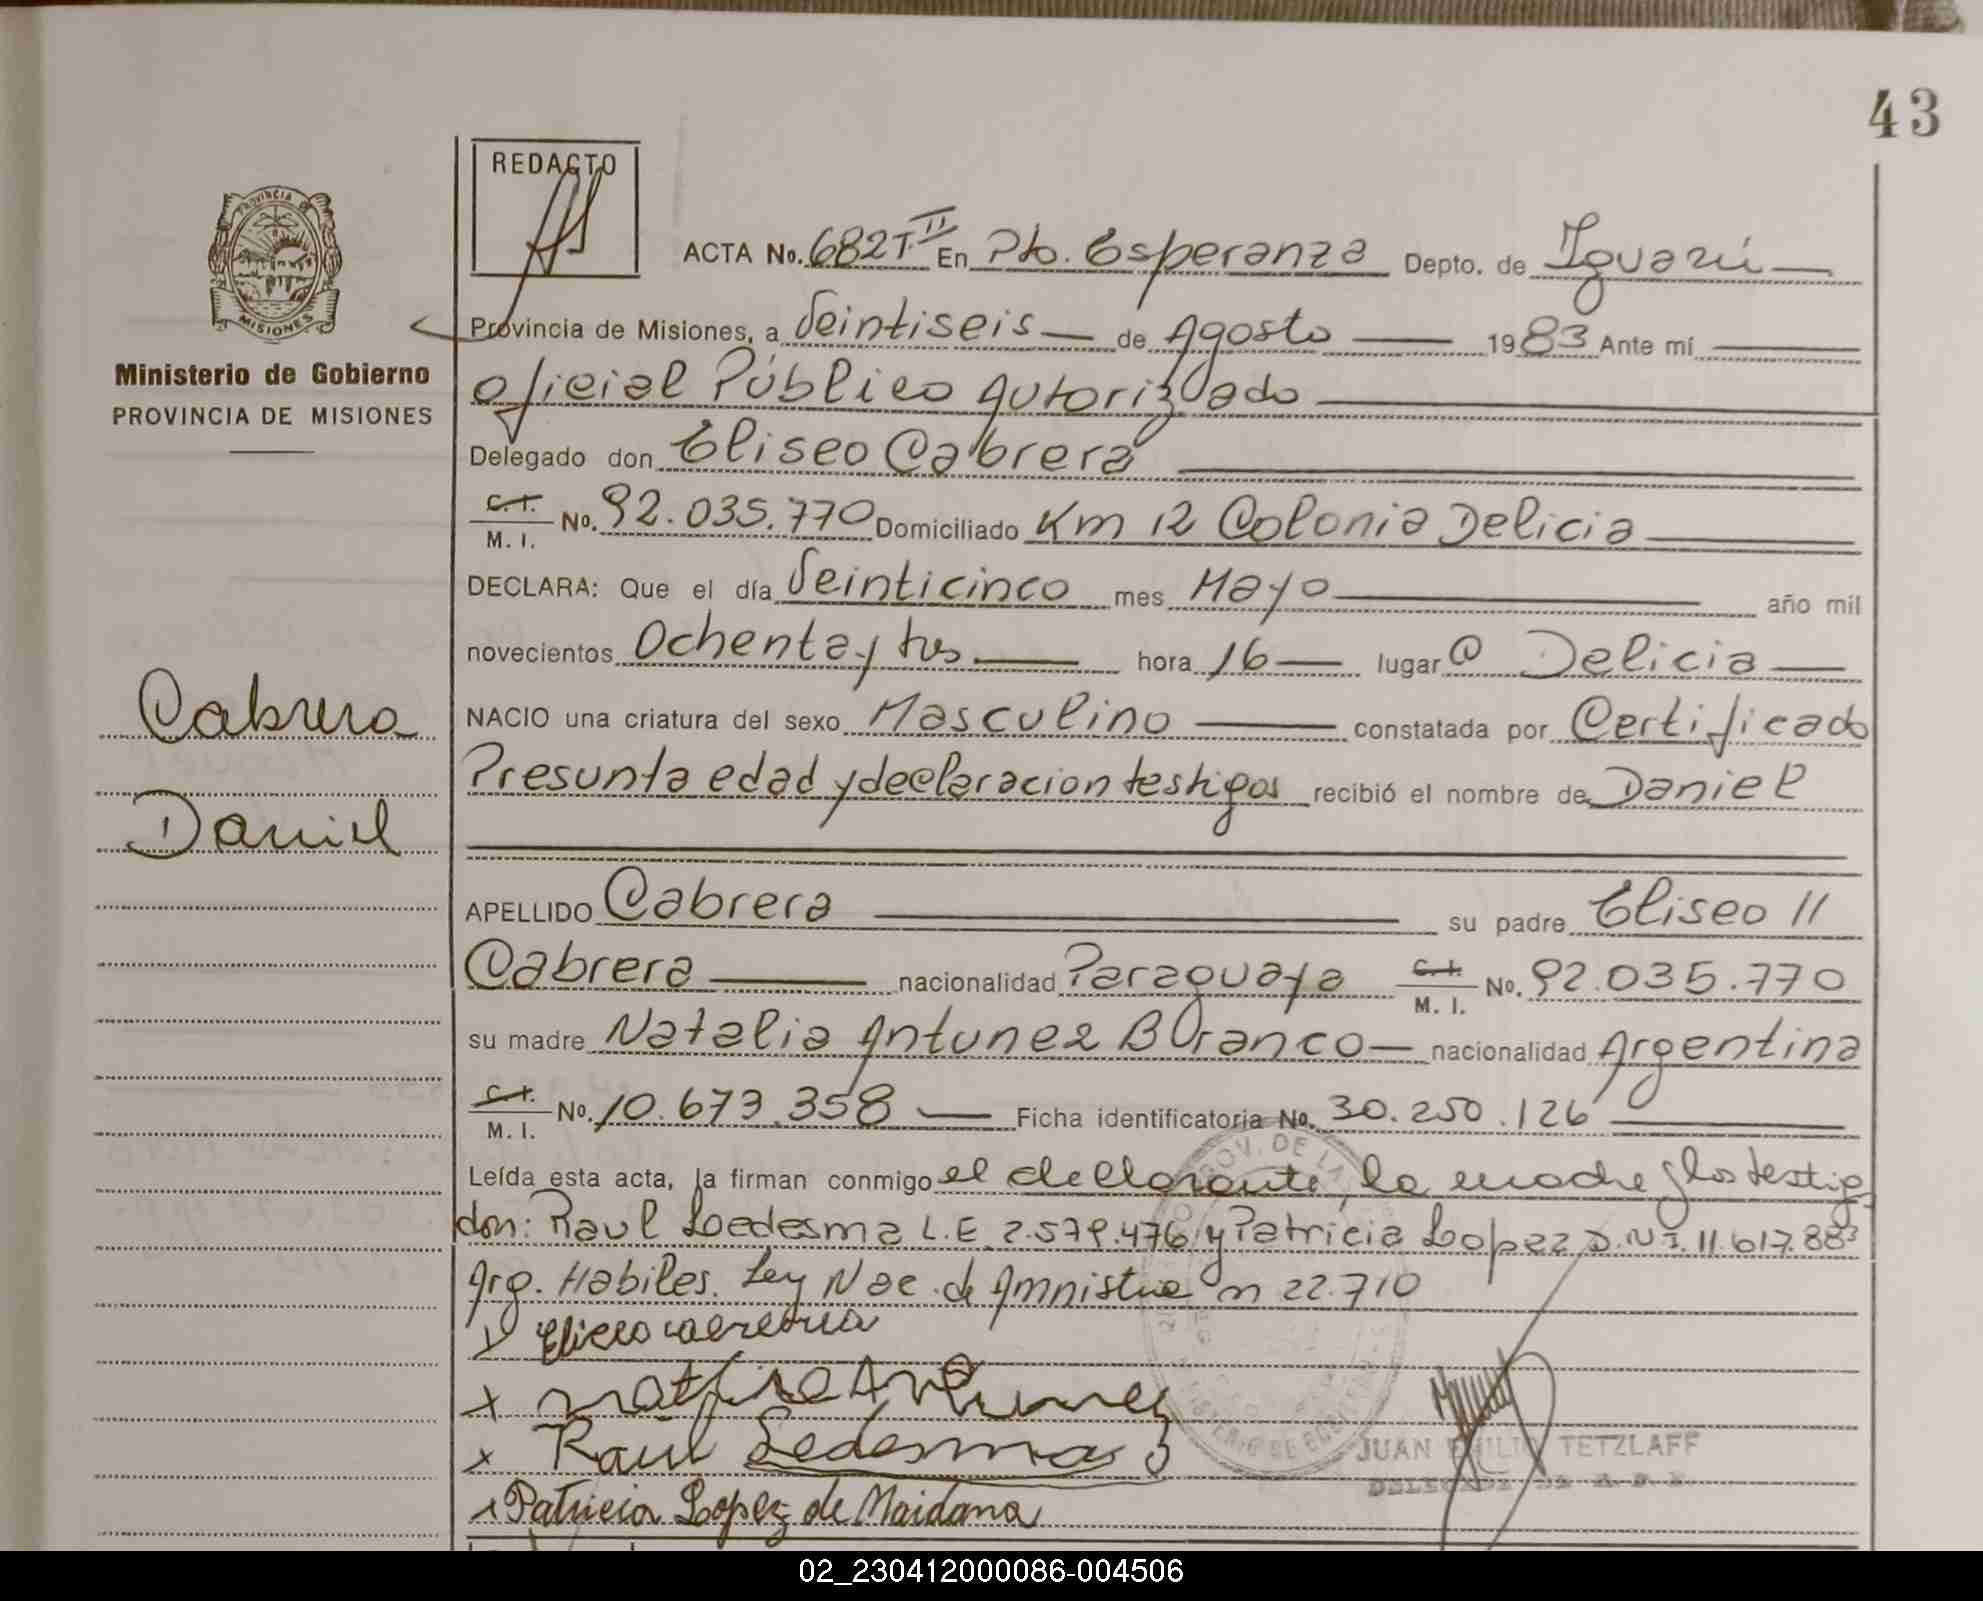 43
REDACTO
ACTA No. 682 T. II En Pto. Esperanza Depto. de Iguazú
PROVINCIA DE MISIONES
Ministerio de Gobierno
PROVINCIA DE MISIONES
Provincia de Misiones, a Veintiseis de Agosto 1983 Ante mí
Oficial Público Autorizado
Delegado don Eliseo Cabrera
C.I. M. I. No. 92.035.770 Domiciliado Km 12 Colonia Delicia
DECLARA: Que el día Veinticinco mes Mayo año mil
novecientos Ochenta y tres hora 16 lugar C Delicia
Cabrera
NACIO una criatura del sexo Masculino constatada por Certificado
Presunta edad y declaracion testigos recibió el nombre de Daniel
Daniel
APELLIDO Cabrera su padre Eliseo //
Cabrera nacionalidad Paraguaya C.I. M. I. No. 92.035.770
su madre Natalia Antunez Branco nacionalidad Argentina
C.I. M. I. No. 10.673.358 Ficha identificatoria No. 30.250.126
Leída esta acta, la firman conmigo el declarante, la madre y los testig
don: Raul Ledesma L.E 2.579.476 y Patricia Lopez D.N.I. 11.617.883
Arg. Habiles. Ley Nac. de Amnistia n 22.710
Raúl Ledesma
Patricia Lopez de Maidana
JUAN EMILIO TETZLAFF
02_230412000086-004506